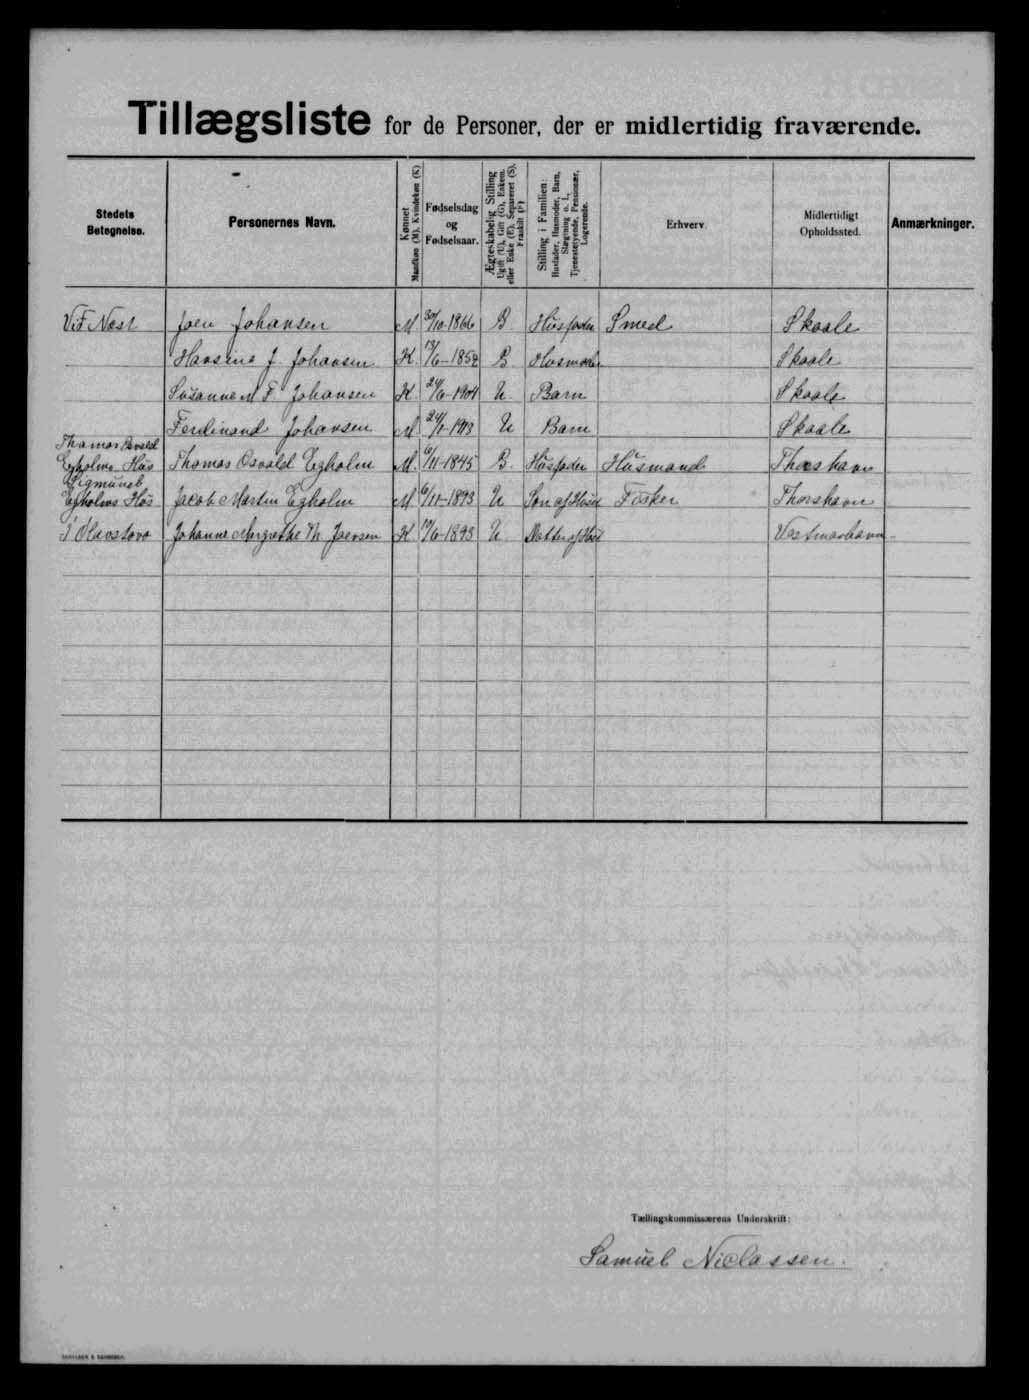 Tillægsliste for de Personer, der er midlertidig fraværende.
Stedets Betegnelse.
Personernes Navn.
Kønnet Mandkøn (M). Kvindekøn (K)
Fødselsdag og Fødselsaar.
Ægteskabelig Stilling Ugift (U), Gift (G), Enkem. eller Enke (E), Separeret (S), Fraskilt (F)
Stilling i Familien: Husfader, Husmoder, Barn, Slægtning o. l., Tjenestetyende, Pensionær, Logerende.
Erhverv.
Midlertidigt Opholdssted.
Anmærkninger.
Við Nest Joen Johansen M. 30/10-1866 Husfader Smed Skaale
Hansine J. Johansen K. 13/6-1852 Husmoder Skaale
Susanne M F. Johansen K. 24/6-1904 U. Barn Skaale
Ferdinand Johansen M 24/1-1913 U Barn Skaale
Thomas Osvald
Egholms Hús Thomas Osvald Egholm M. 6/11-1845 Húsfader Húsmand Thorshavn
Sigmund
Egholms Hús Jacob Martin Egholm M 6/11-1893 U Søn af Húsf Fisker Thorshavn
I Ólavstovo Johanne Margrethe Th. Joensen K 19/6-1893 U Datter af Húsf Vestmanhavn
Tællingskommissærens Underskrift:
Samúel Niclassen.